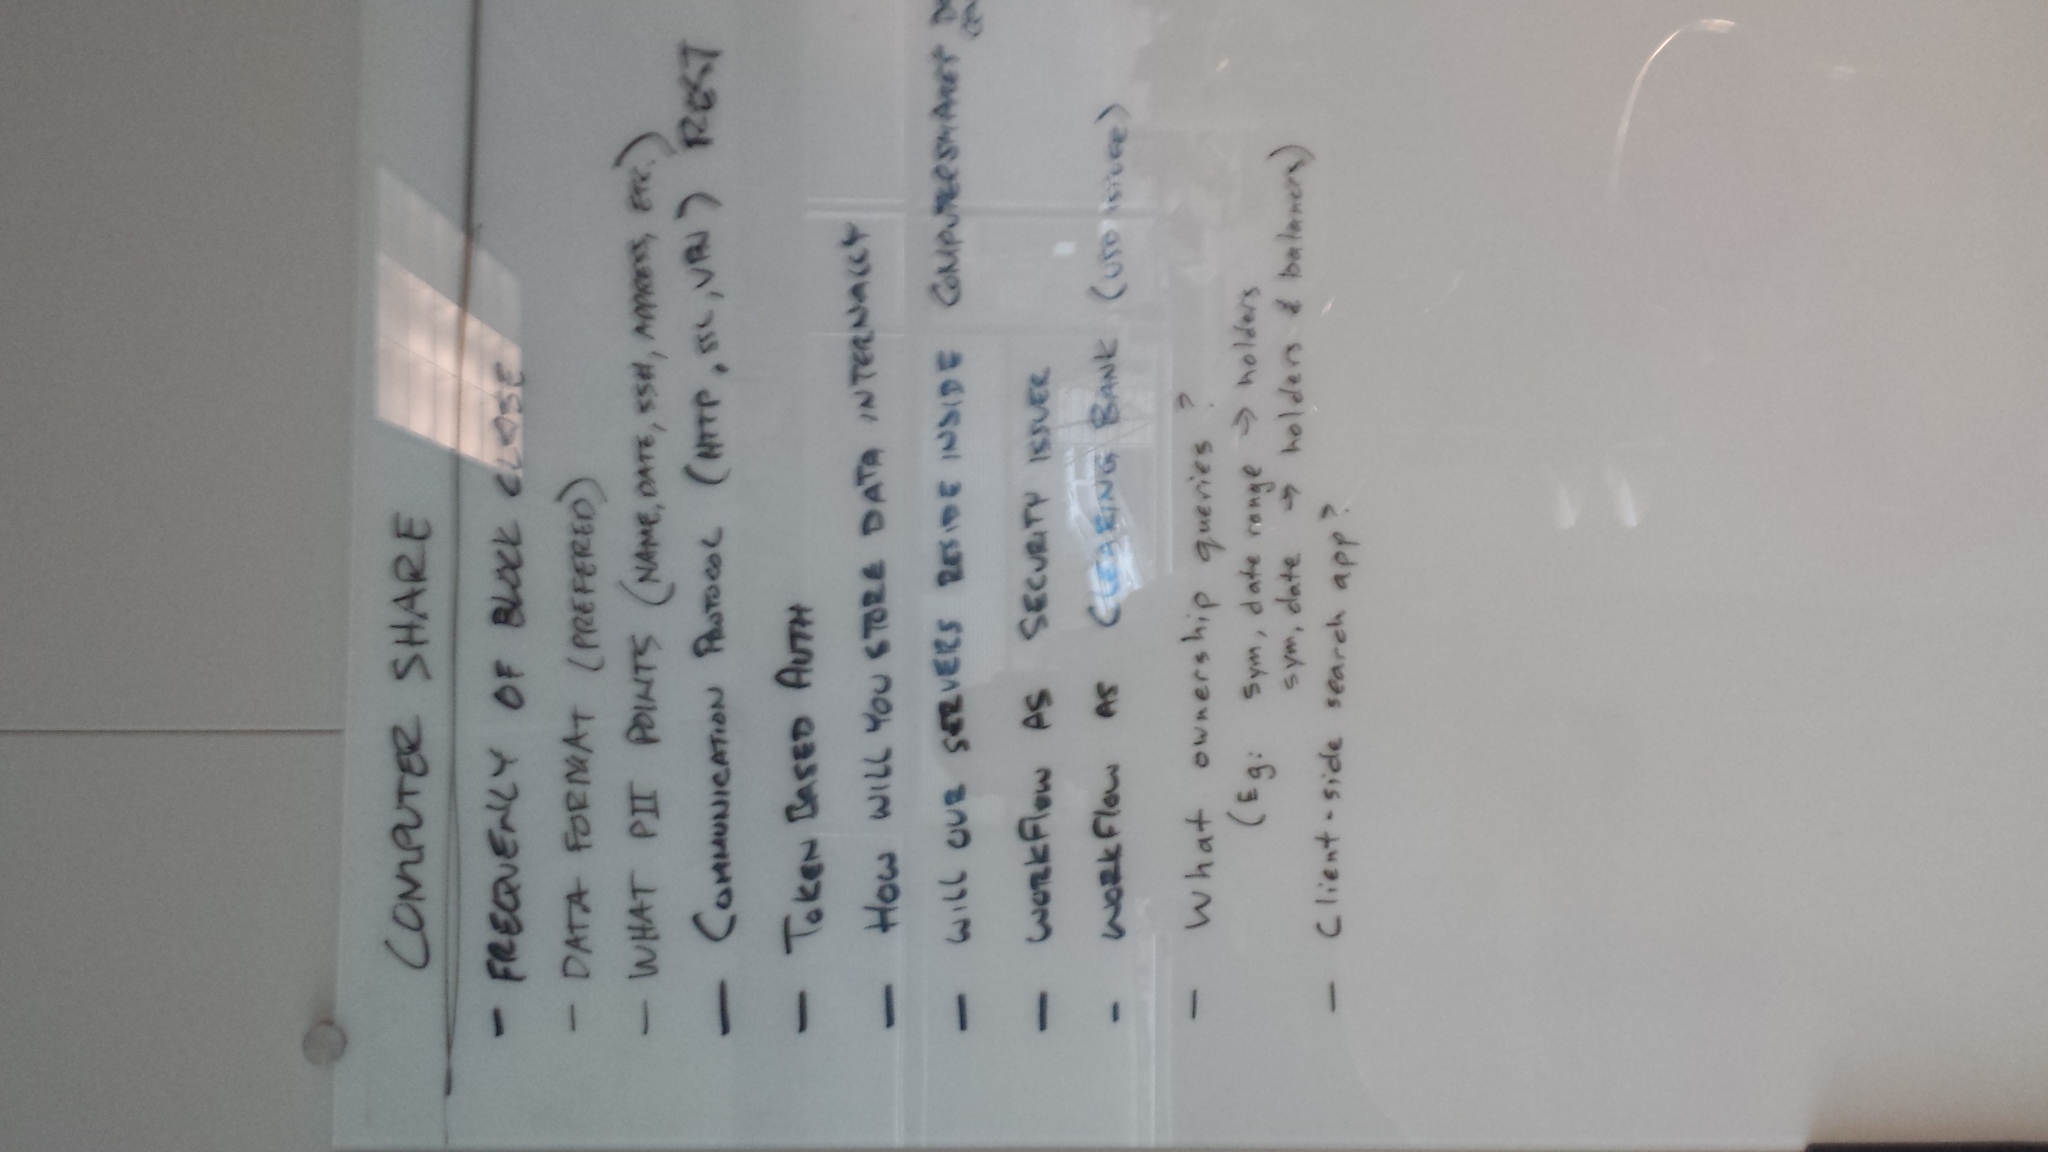 COMPUTER SHARE
- FREQUENLY OF BLOCK CLOSE
- DATA FORMAT (PREFERED)
- WHAT PII POINTS (NAME, DATE, SSN, ADDRESS, ETC.)
- COMMUNICATION PROTOCOL (HTTP, SSL, VPN) REST
- TOKEN BASED AUTH
- HOW WILL YOU STORE DATA INTERNALLY
- WILL OUR SERVERS RESIDE INSIDE COMPUTERSHARE
- WORKFLOW AS SECURITY ISSUER
- WORKFLOW AS CLEARING BANK (USD ISSUER)
- What ownership queries?
(Eg: sym, date range → holders
sym, date → holders & balances)
- Client-side search app?